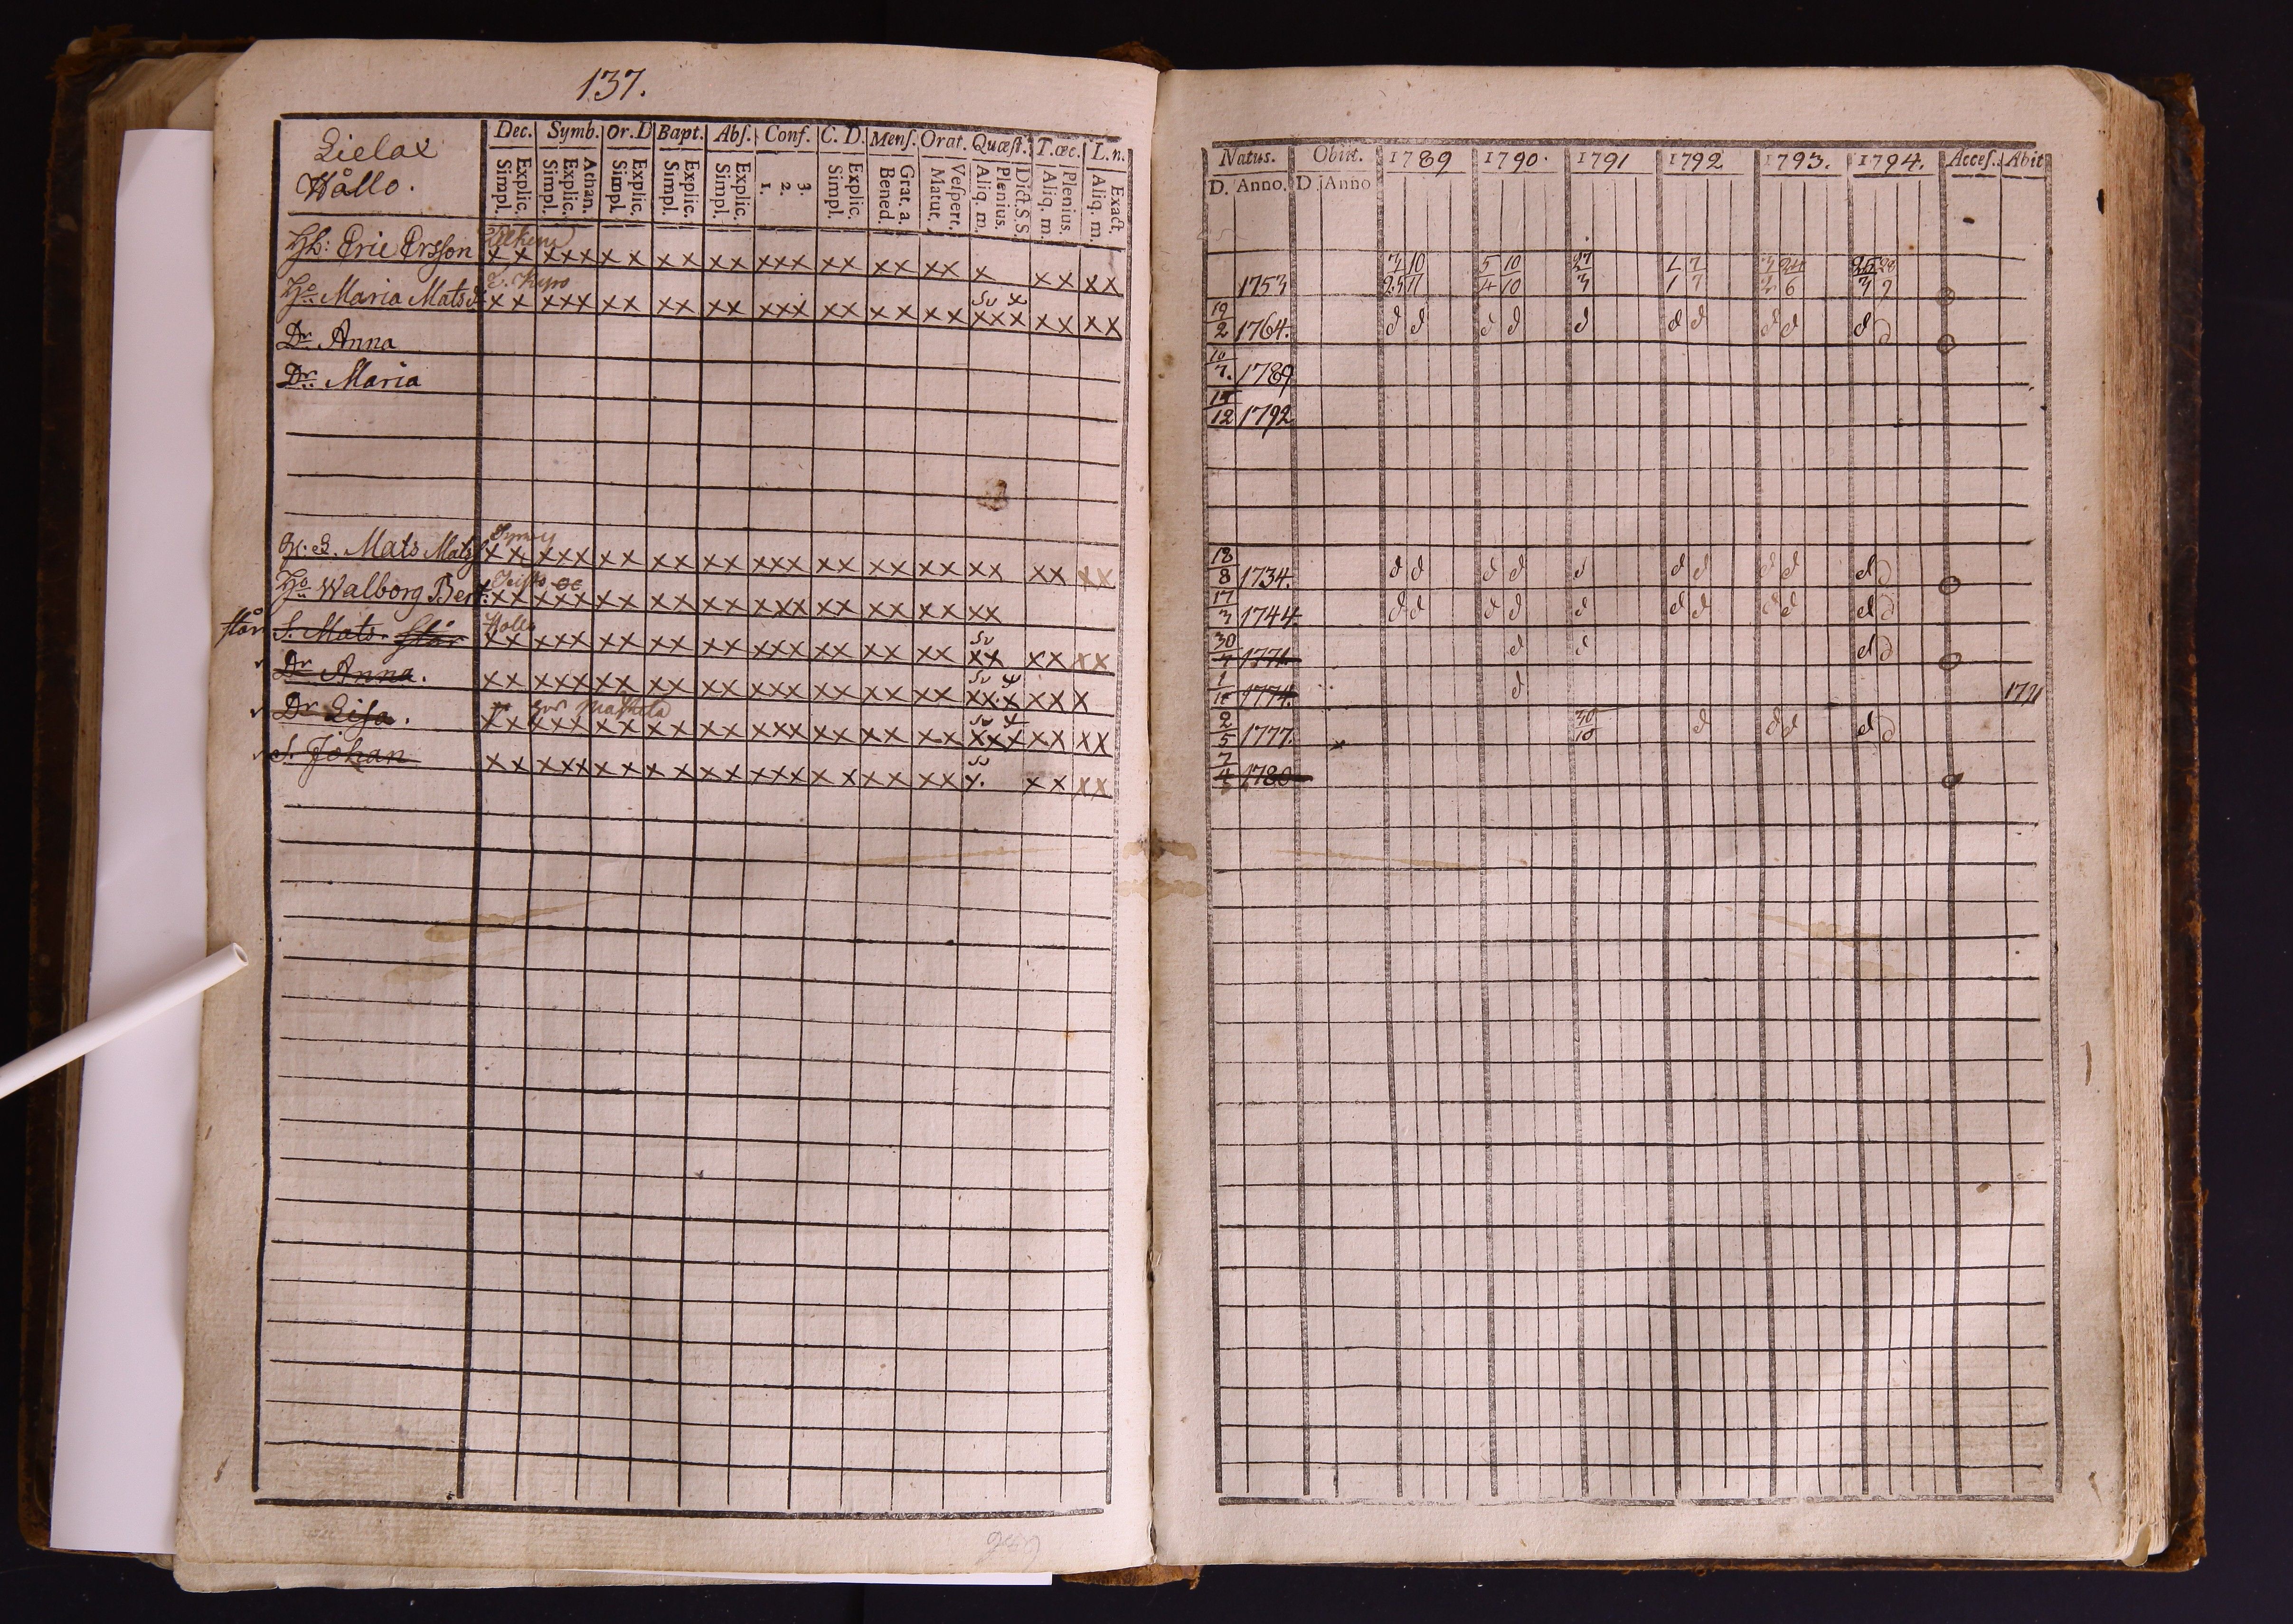 137.
Lielax
Wållo.
Dec. Symb. Or. D Bapt. Abſ. Conf. C. D. Menſ. Orat. Quæſt. T. œc. L. n.
Explic. Simpl. Athan. Explic. Simpl. Explic. Simpl. Explic. Simpl. Explic. Simpl. 3. 2. 1. Explic. Simpl. Grat. a. Bened. Veſpert. Matut. Dict. S. S. Plenius. Aliq. m. Plenius. Aliq. m. Exact. Aliq. m.
Hb: Eric Ersson x x x x x x x x x x x x x x x x x x x x x x x x x
Ho Maria Matsd. x x x x x x x x x x x x x x x x x x x x x x x x x x x
Dr Anna
Dr. Maria
Mats Mats x x x x x x x x x x x x x x x x x x x x x x x x x x
Ho Walborg Bert. x x x x x x x x x x x x x x x x x x x x x x
S. Mats. x x x x x x x x x x x x x x x x x x x x x x x x x x
Dr Anna. x x x x x x x x x x x x x x x x x x x x x x x x x x
Dr Lisa. x x x x x x x x x x x x x x x x x x x x x x x x x x x
S. Johan x x x x x x x x x x x x x x x x x x x x x x x x x
Natus. Obiit. 1789 1790. 1791 1792 1793. 1794. Acceſ. Abit
D. Anno. D. Anno
1753
19/2 1764. d d d d d d d d d d d
10/7. 1789
12 1792
18/8 1734. d d d d d d d d d d d
17/3 1744. d d d d d d d d d d d
30 1771. d d d d
1 1774. d 1791
2/5 1777. 30/10 d d d d d
7/4 1780